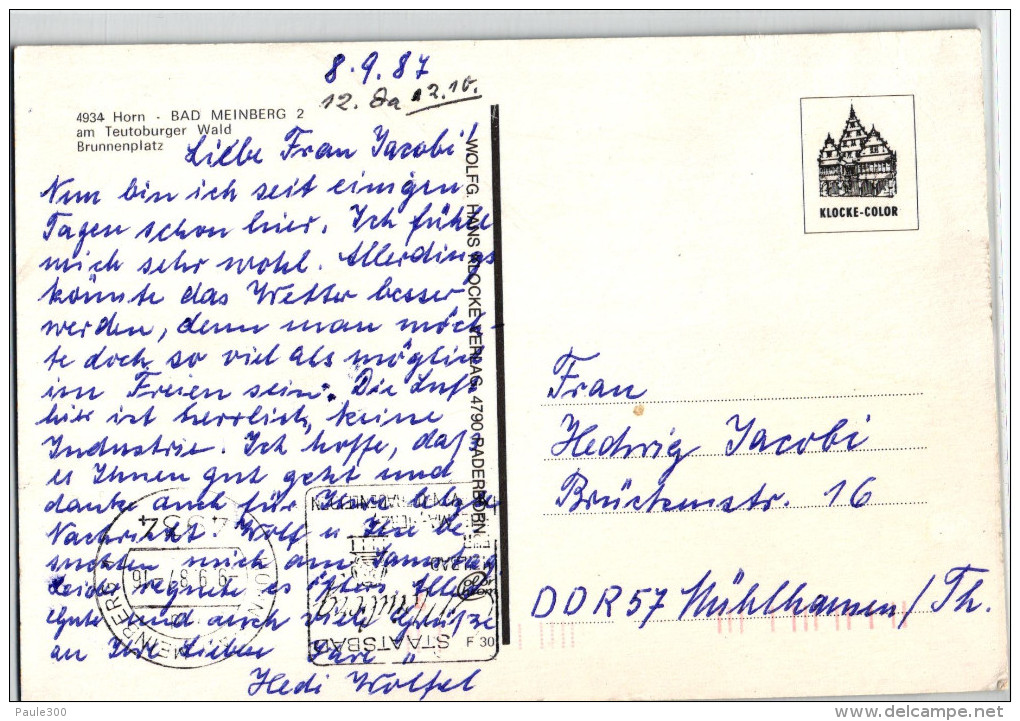 8.9.87
12. Da 12.10.
4934 Horn - BAD MEINBERG 2
am Teutoburger Wald
Brunnenplatz
Liebe Frau Jacobi!
Nun bin ich seit einigen
Tagen schon hier. Ich fühle
mich sehr wohl. Allerdings
könnte das Wetter besser
werden, denn man möch-
te doch so viel als möglich
im Freien sein. Die Luft
hier ist herrlich, keine
Industrie. Ich hoffe, daß
es Ihnen gut geht und
danke auch für Ihre
Nachricht. Wolf u. Ilse be
suchten mich am Samstag
leider regnete es öfters. Alles
Gute und auch viele Grüße
an Ihre Lieben
Hedi Wölfel
WOLFG. HANS KLOCKE VERLAG, 4790 PADERBORN
KLOCKE-COLOR
Frau
Hedwig Jacobi
Brückenstr. 16
DDR 57 Mühlhausen/Th.
4934
-9.9.87-16
MEINBERG
STAATSBAD
F 30
Paule300